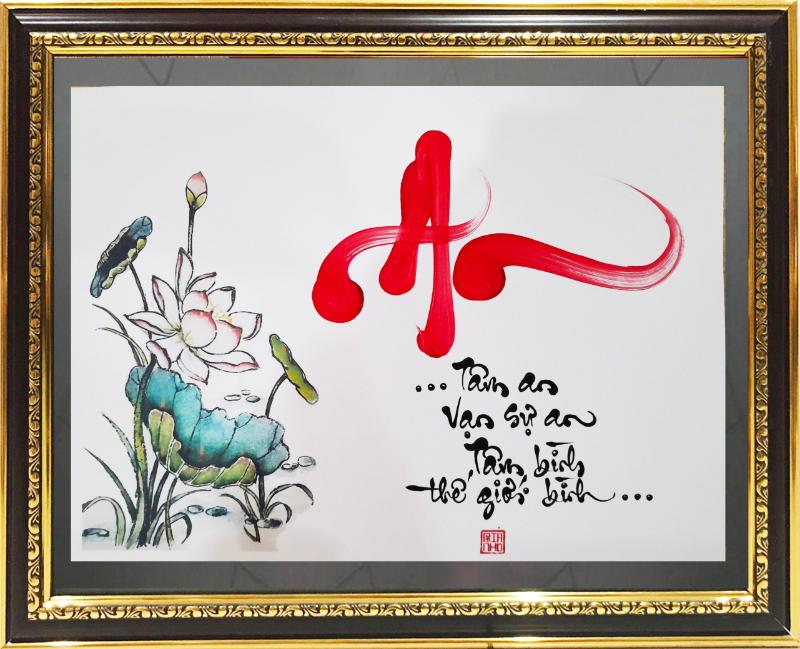 An
...Tâm an
vạn sự an
Tâm bình
thế giới bình...
GIA
NHO